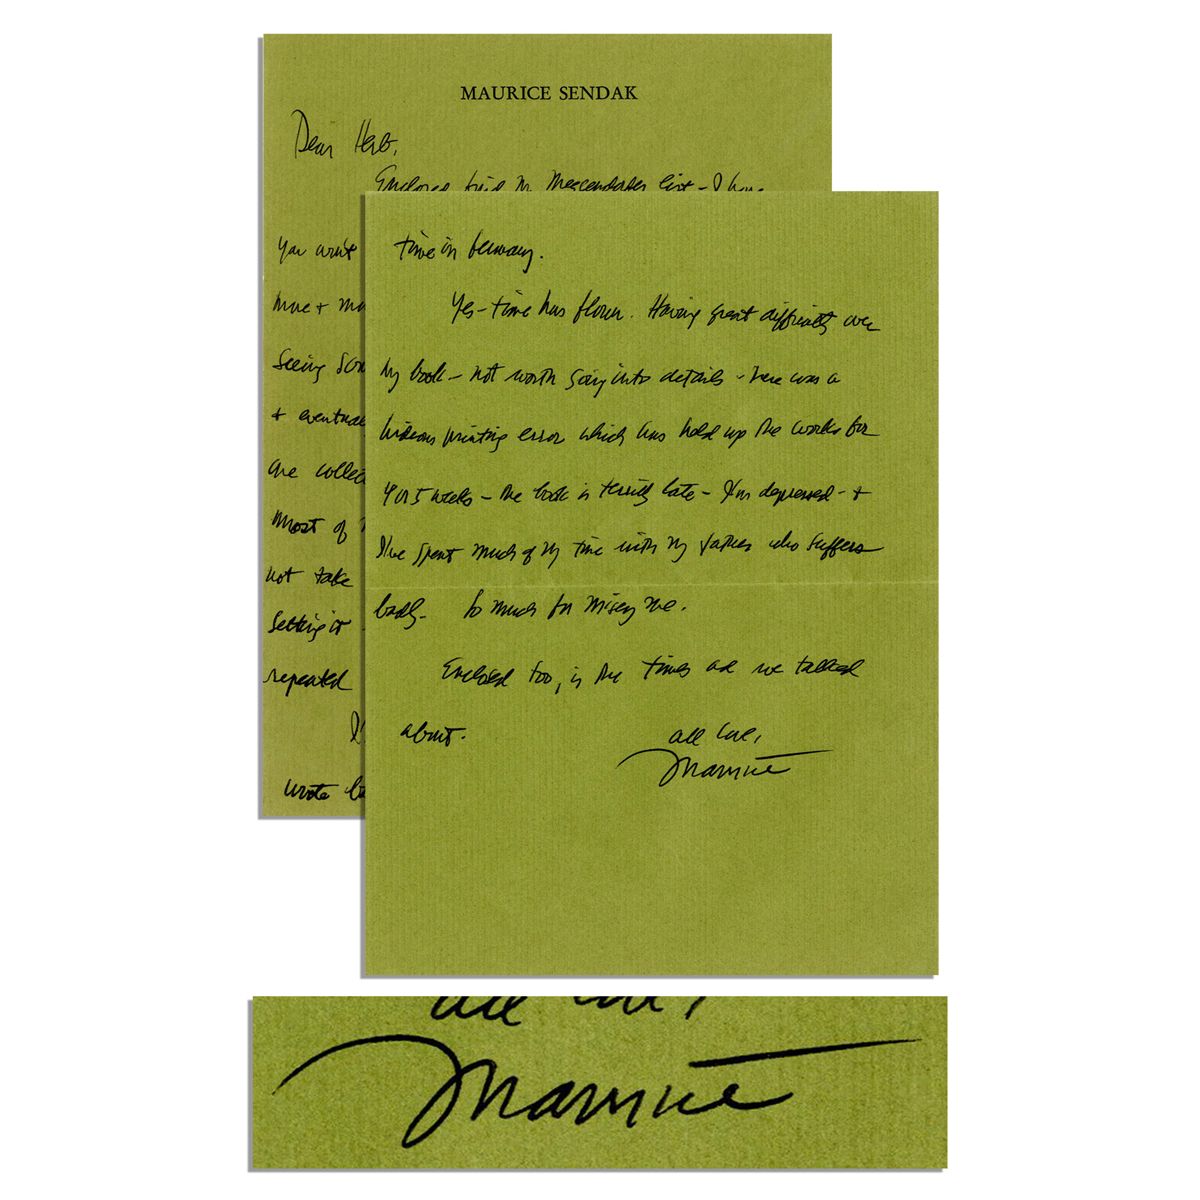 MAURICE SENDAK
Dear Herb,
Enclosed find list - I have
You won't
seeing
+ eventual
are collec
Most of
not take
setting it
repeated
wrote
time in Germany.
Yes - time has flown. Having great difficulty over
my book - not worth going into details - there was a
hideous printing error which has held up the works for
4 or 5 weeks - the book is terribly late - I'm depressed - +
I've spent much of my time with my father who suffers
badly. So much for misery me.
Enclosed too, is the Times ad we talked
about.
all love,
Maurice
all love,
Maurice